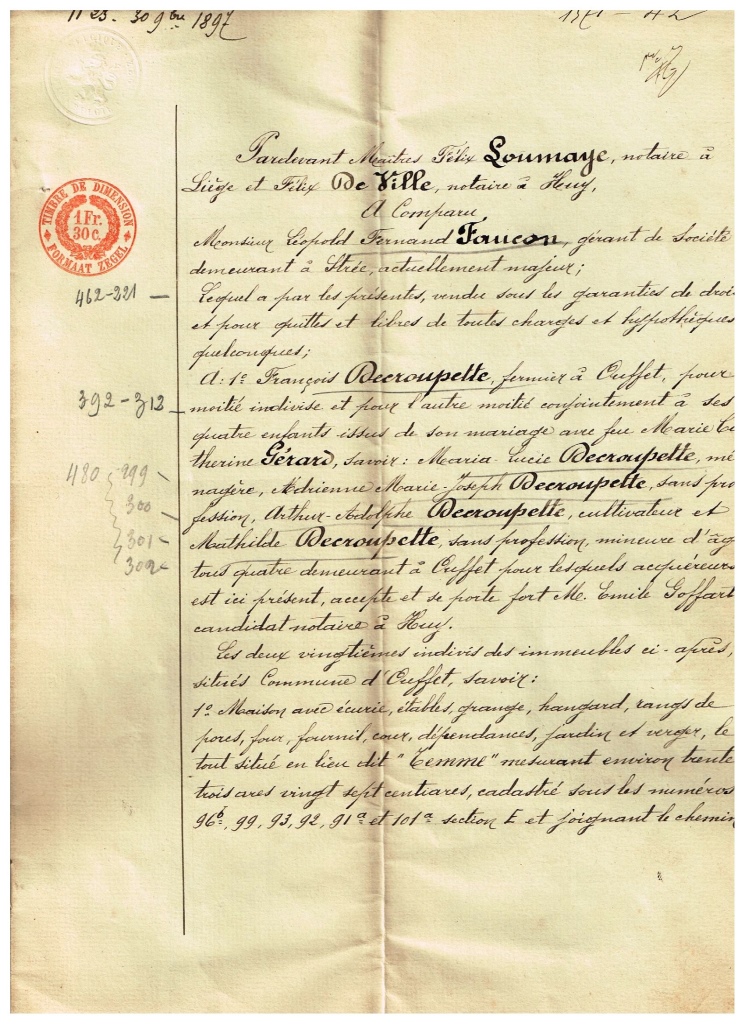 30 9bre 1897
TIMBRE DE DIMENSION
1 Fr.
30 c.
FORMAAT ZEGEL
Pardevant Maîtres Félix Loumaye, notaire à
Liège et Félix De Ville, notaire à Huy,
A Comparu
Monsieur Léopold Fernand Faucon, gérant de Société
demeurant à Strée, actuellement majeur;
462-221 —
Lequel a par les présentes, vendu sous les garanties de droi
et pour quittes et libres de toutes charges et hypothèques
quelconques;
A: 1º François Decroupette, fermier à Ouffet, pour
392-312 —
moitié indivise et pour l'autre moitié conjointement à ses
quatre enfants issus de son mariage avec feu Marie Ca
therine Gérard, savoir: Maria-Lucie Decroupette, mé
480 299 -
nagère, Adrienne Marie-Joseph Decroupette, sans pro
300 -
fession, Arthur-Adolphe Decroupette, cultivateur et
301 -
Mathilde Decroupette, sans profession, mineure d'âg
302 -
tous quatre demeurant à Ouffet pour lesquels acquéreurs
est ici présent, accepte et se porte fort M. Emile Goffart
candidat notaire à Huy.
Les deux vingtièmes indivis des immeubles ci-après,
situés Commune d'Ouffet, savoir:
1º Maison avec écurie, étables, grange, hangard, rangs de
porcs, four, fournil, cour, dépendances, jardin et verger, le
tout situé en lieu dit "Temme" mesurant environ trente
trois ares vingt sept centiares, cadastré sous les numéros
96b, 99, 93, 92, 91a et 101a section E et joignant le chemin